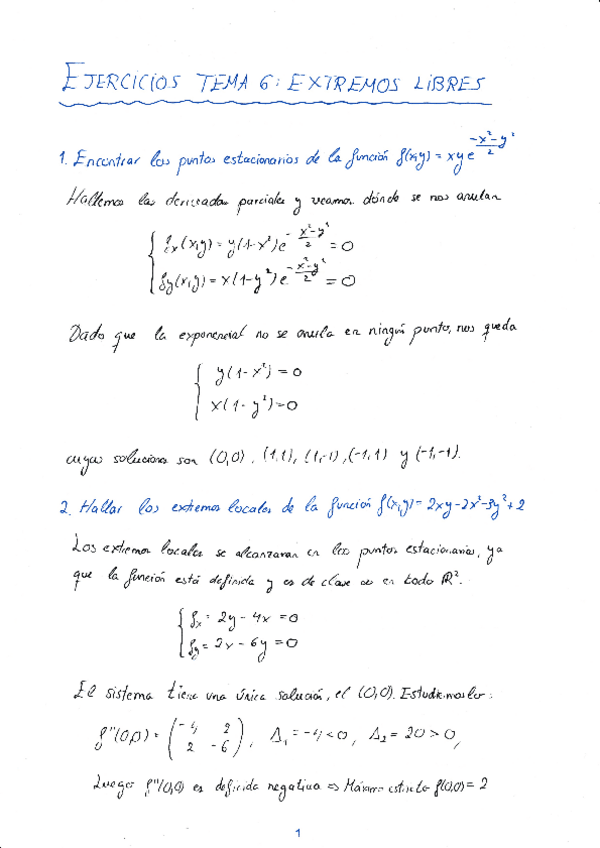 EJERCICIOS TEMA 6: EXTREMOS LIBRES
1. Encontrar los puntos estacionarios de la función f(x,y) = xy e^{(-x²-y²)/2}
Hallemos las derivadas parciales y veamos dónde se nos anulan
{ fx(x,y) = y(1-x²)e^{-(x²-y²)/2} = 0
fy(x,y) = x(1-y²)e^{-(x²-y²)/2} = 0
Dado que la exponencial no se anula en ningún punto, nos queda
{ y(1-x²) = 0
x(1-y²) = 0
cuyas soluciones son (0,0), (1,1), (1,-1), (-1,1) y (-1,-1).
2. Hallar los extremos locales de la función f(x,y) = 2xy-2x²-3y²+2
Los extremos locales se alcanzaran en los puntos estacionarios, ya
que la función está definida y es de clase ∞ en todo R².
{ fx = 2y - 4x = 0
fy = 2x - 6y = 0
El sistema tiene una única solución, el (0,0). Estudiemoslo:
f''(0,0) = (-4 2
2 -6), Δ₁ = -4 < 0, Δ₂ = 20 > 0,
Luego f''(0,0) es definida negativa ⇒ Máximo estricto f(0,0) = 2
1